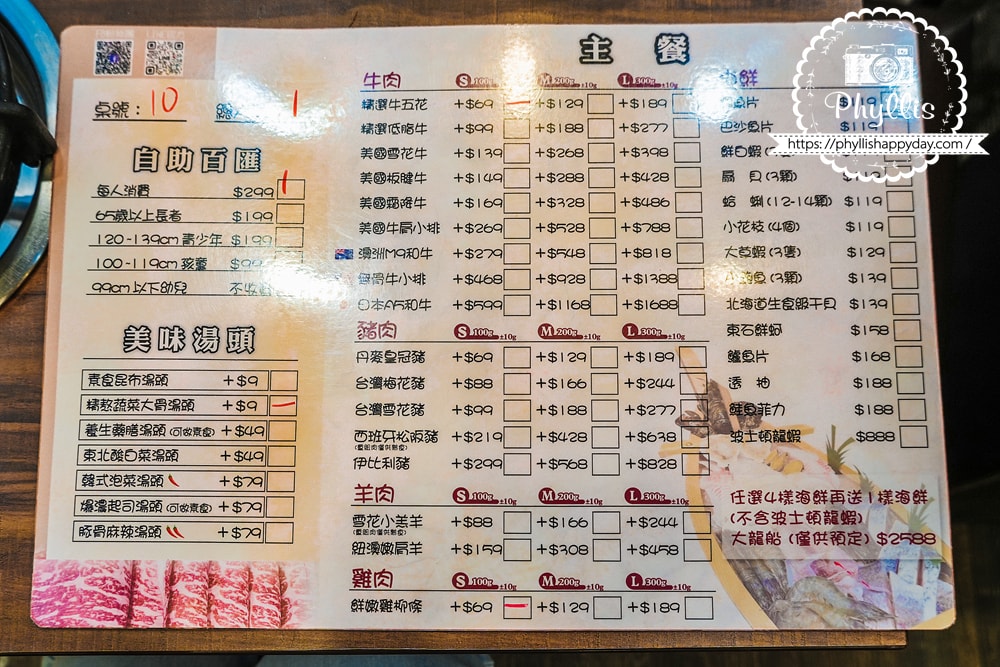 桌號: 10
1
自助百匯
每人消費 $299 1
65歲以上長者 $199
120-139cm 青少年 $199
100-119cm 孩童
99cm 以下幼兒
美味湯頭
素食昆布湯頭 +$9
精熬蔬菜大骨湯頭 +$9
養生藥膳湯頭(可做素食) +$49
東北酸白菜湯頭 +$49
韓式泡菜湯頭 +$79
爆濃起司湯頭(可做素食) +$79
豚骨麻辣湯頭 +$79
主餐
牛肉 S 100g M 200g L 300g
精選牛五花 +$69 +$129 +$189
精選低脂牛 +$99 +$188 +$277
美國雪花牛 +$139 +$268 +$398
美國板腱牛 +$149 +$288 +$428
美國霜降牛 +$169 +$328 +$486
美國牛肩小排 +$269 +$528 +$788
澳洲M9和牛 +$279 +$548 +$818
無骨牛小排 +$468 +$928 +$1388
日本A5和牛 +$599 +$1168 +$1688
豬肉 S 100g ±10g M 200g ±10g L 300g ±10g
丹麥皇冠豬 +$69 +$129 +$189
台灣梅花豬 +$88 +$166 +$244
台灣雪花豬 +$99 +$188 +$277
西班牙松阪豬 +$219 +$428 +$638
伊比利豬 +$299 +$568 +$828
羊肉 S 100g ±10g M 200g ±10g L 300g ±10g
雪花小羔羊 +$88 +$166 +$244
紐澳嫩肩羊 +$159 +$308 +$458
雞肉 S 100g ±10g M 200g ±10g L 300g ±10g
鮮嫩雞柳條 +$69 +$129 +$189
海鮮
魚片
巴沙魚片 $119
鮮白蝦
扇貝(3顆)
蛤蜊(12-14顆) $119
小花枝(4個) $119
大草蝦(3隻) $129
(3顆) $139
北海道生食級干貝 $139
東石鮮蚵 $158
鱸魚片 $168
透抽 $188
鮮魚菲力 $188
波士頓龍蝦 $888
任選4樣海鮮再送1樣海鮮
(不含波士頓龍蝦)
大龍船(僅供預定) $2588
Phyllis
https://phyllishappyday.com/